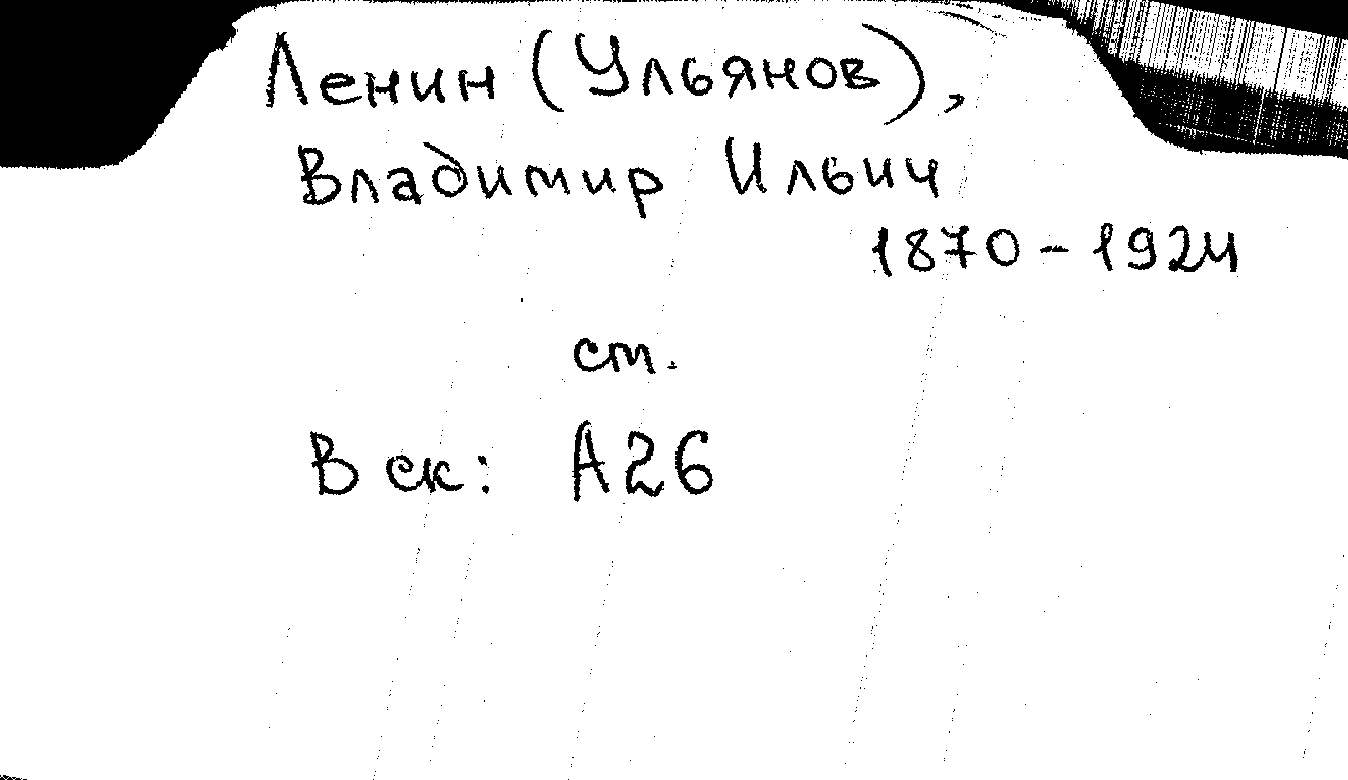 Ленин (Ульянов),
Владимир Ильич
1870-1924
ст.
В ск: А26